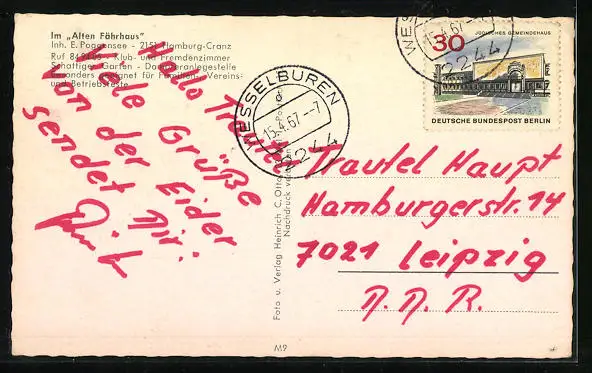 Im „Alten Fährhaus"
Inh. E. Poggensee - 2151 Hamburg-Cranz
Klub- und Fremdenzimmer
Schattiger Garten - Dampferanlegestelle
Besonders geeignet für Familien-, Vereins-
und Betriebsfeste
Hallo Trautel
Viele Grüße
von der Eider
sendet Dir:
WESSELBUREN
15.4.67.--7
2244
WESSELBUREN
15.4.67.--7
2244
30
JÜDISCHES GEMEINDEHAUS
DEUTSCHE BUNDESPOST BERLIN
Foto u. Verlag Heinrich C. Otto
Nachdruck verboten
M9
Trautel Haupt
Hamburgerstr. 14
7021 Leipzig
D.D.R.